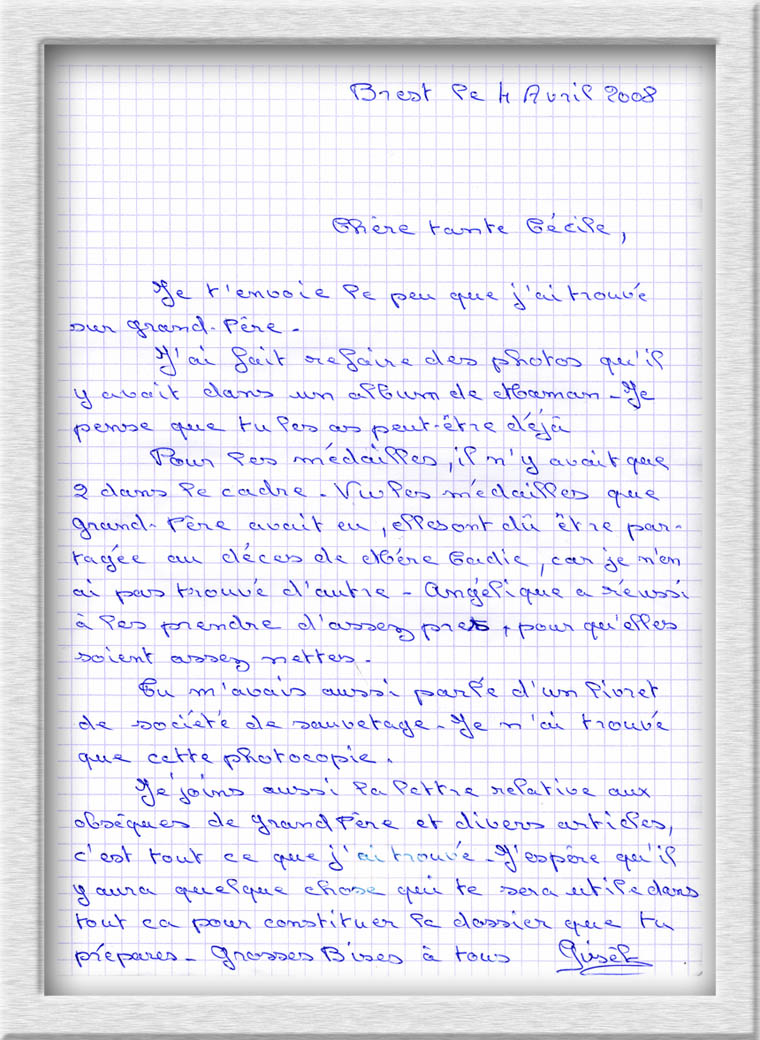 Brest le 4 Avril 2008
Chère tante Cécile,
Je t'envoie le peu que j'ai trouvé
sur grand-Père.
J'ai fait refaire des photos qu'il
y avait dans un album de Maman - Je
pense que tu les as peut-être déjà
Pour les médailles, il n'y avait que
2 dans le cadre. Vu les médailles que
grand-Père avait eu, elles ont dû être par-
tagée au décès de Mère Cadie, car je n'en
ai pas trouvé d'autre - Angélique a réussi
à les prendre d'assez près, pour qu'elles
soient assez nettes.
Tu m'avais aussi parlé d'un livret
de société de sauvetage - Je n'ai trouvé
que cette photocopie.
Je joins aussi la lettre relative aux
obsèques de grand Père et divers articles,
c'est tout ce que j'ai trouvé - J'espère qu'il
y aura quelque chose qui te sera utile dans
tout ca pour constituer le dossier que tu
prépares - Grosses Bises à tous Gisèle